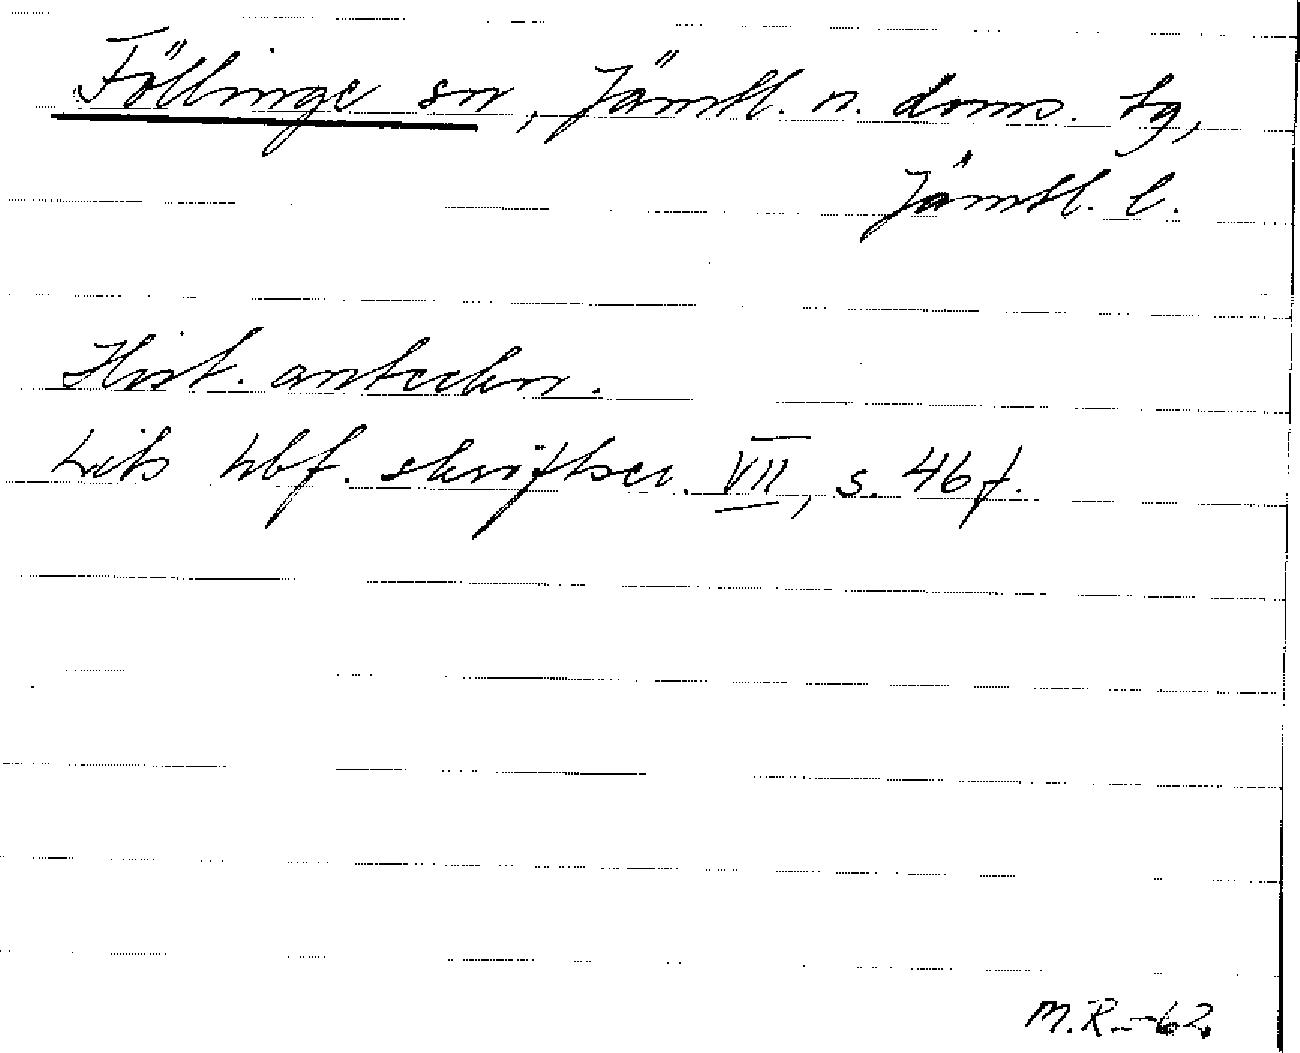 Föllinge sn, Jämtl. n. doms. tg,
Jämtl. l.
Hist. anteckn.
Lits hbf. skriftser. VII, s. 46 f.
M.R. -62